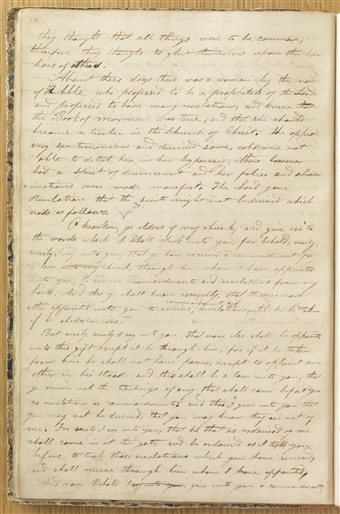 they thought that all things were to be common,
therefore they thought to glut themselves upon the la-
bors of others.
About these days there was a woman by the name
of Hubble who professed to be a prophetess of the Lord
and professed to have many revelations, and knew
the Book of mormon was true; and that she should
become a teacher in the Church of Christ. She appear
very sanctimonious and deceived some, who were not
able to detect her in her hypocracy: others however
had a spirit of discernment and her follies and abom
inations were made manifest. The Lord gave
revelation that the saints might not be deceived which
reads as follows:
O hearken, ye elders of my church, and give ear to
the words which I shall speak unto you: for behold, verily,
verily, I say unto you, that ye have received a commandment for
a law unto my church, through him whom I have appointed
unto you, to receive commandments and revelations from my
hand. And this ye shall know assuredly, that there is none
other appointed unto you to receive commandments and revelations until he be taken
if he abide in me.
But verily, verily I say unto you, that none else shall be appointed
unto this gift except it be through him, for if it be taken
from him he shall not have power, except to appoint an
other in his stead: and this shall be a law unto you, that
ye receive not the teachings of any that shall come before you
as revelations or commandments: and this I give unto you that
you may not be deceived, that you may know they are not of
me. For verily I say unto you, that he that is ordained of me
shall come in at the gate and be ordained as I told you
before, to teach those revelations which you have received,
and shall receive through him whom I have appointed.
And now, Behold I give unto you a commandment,